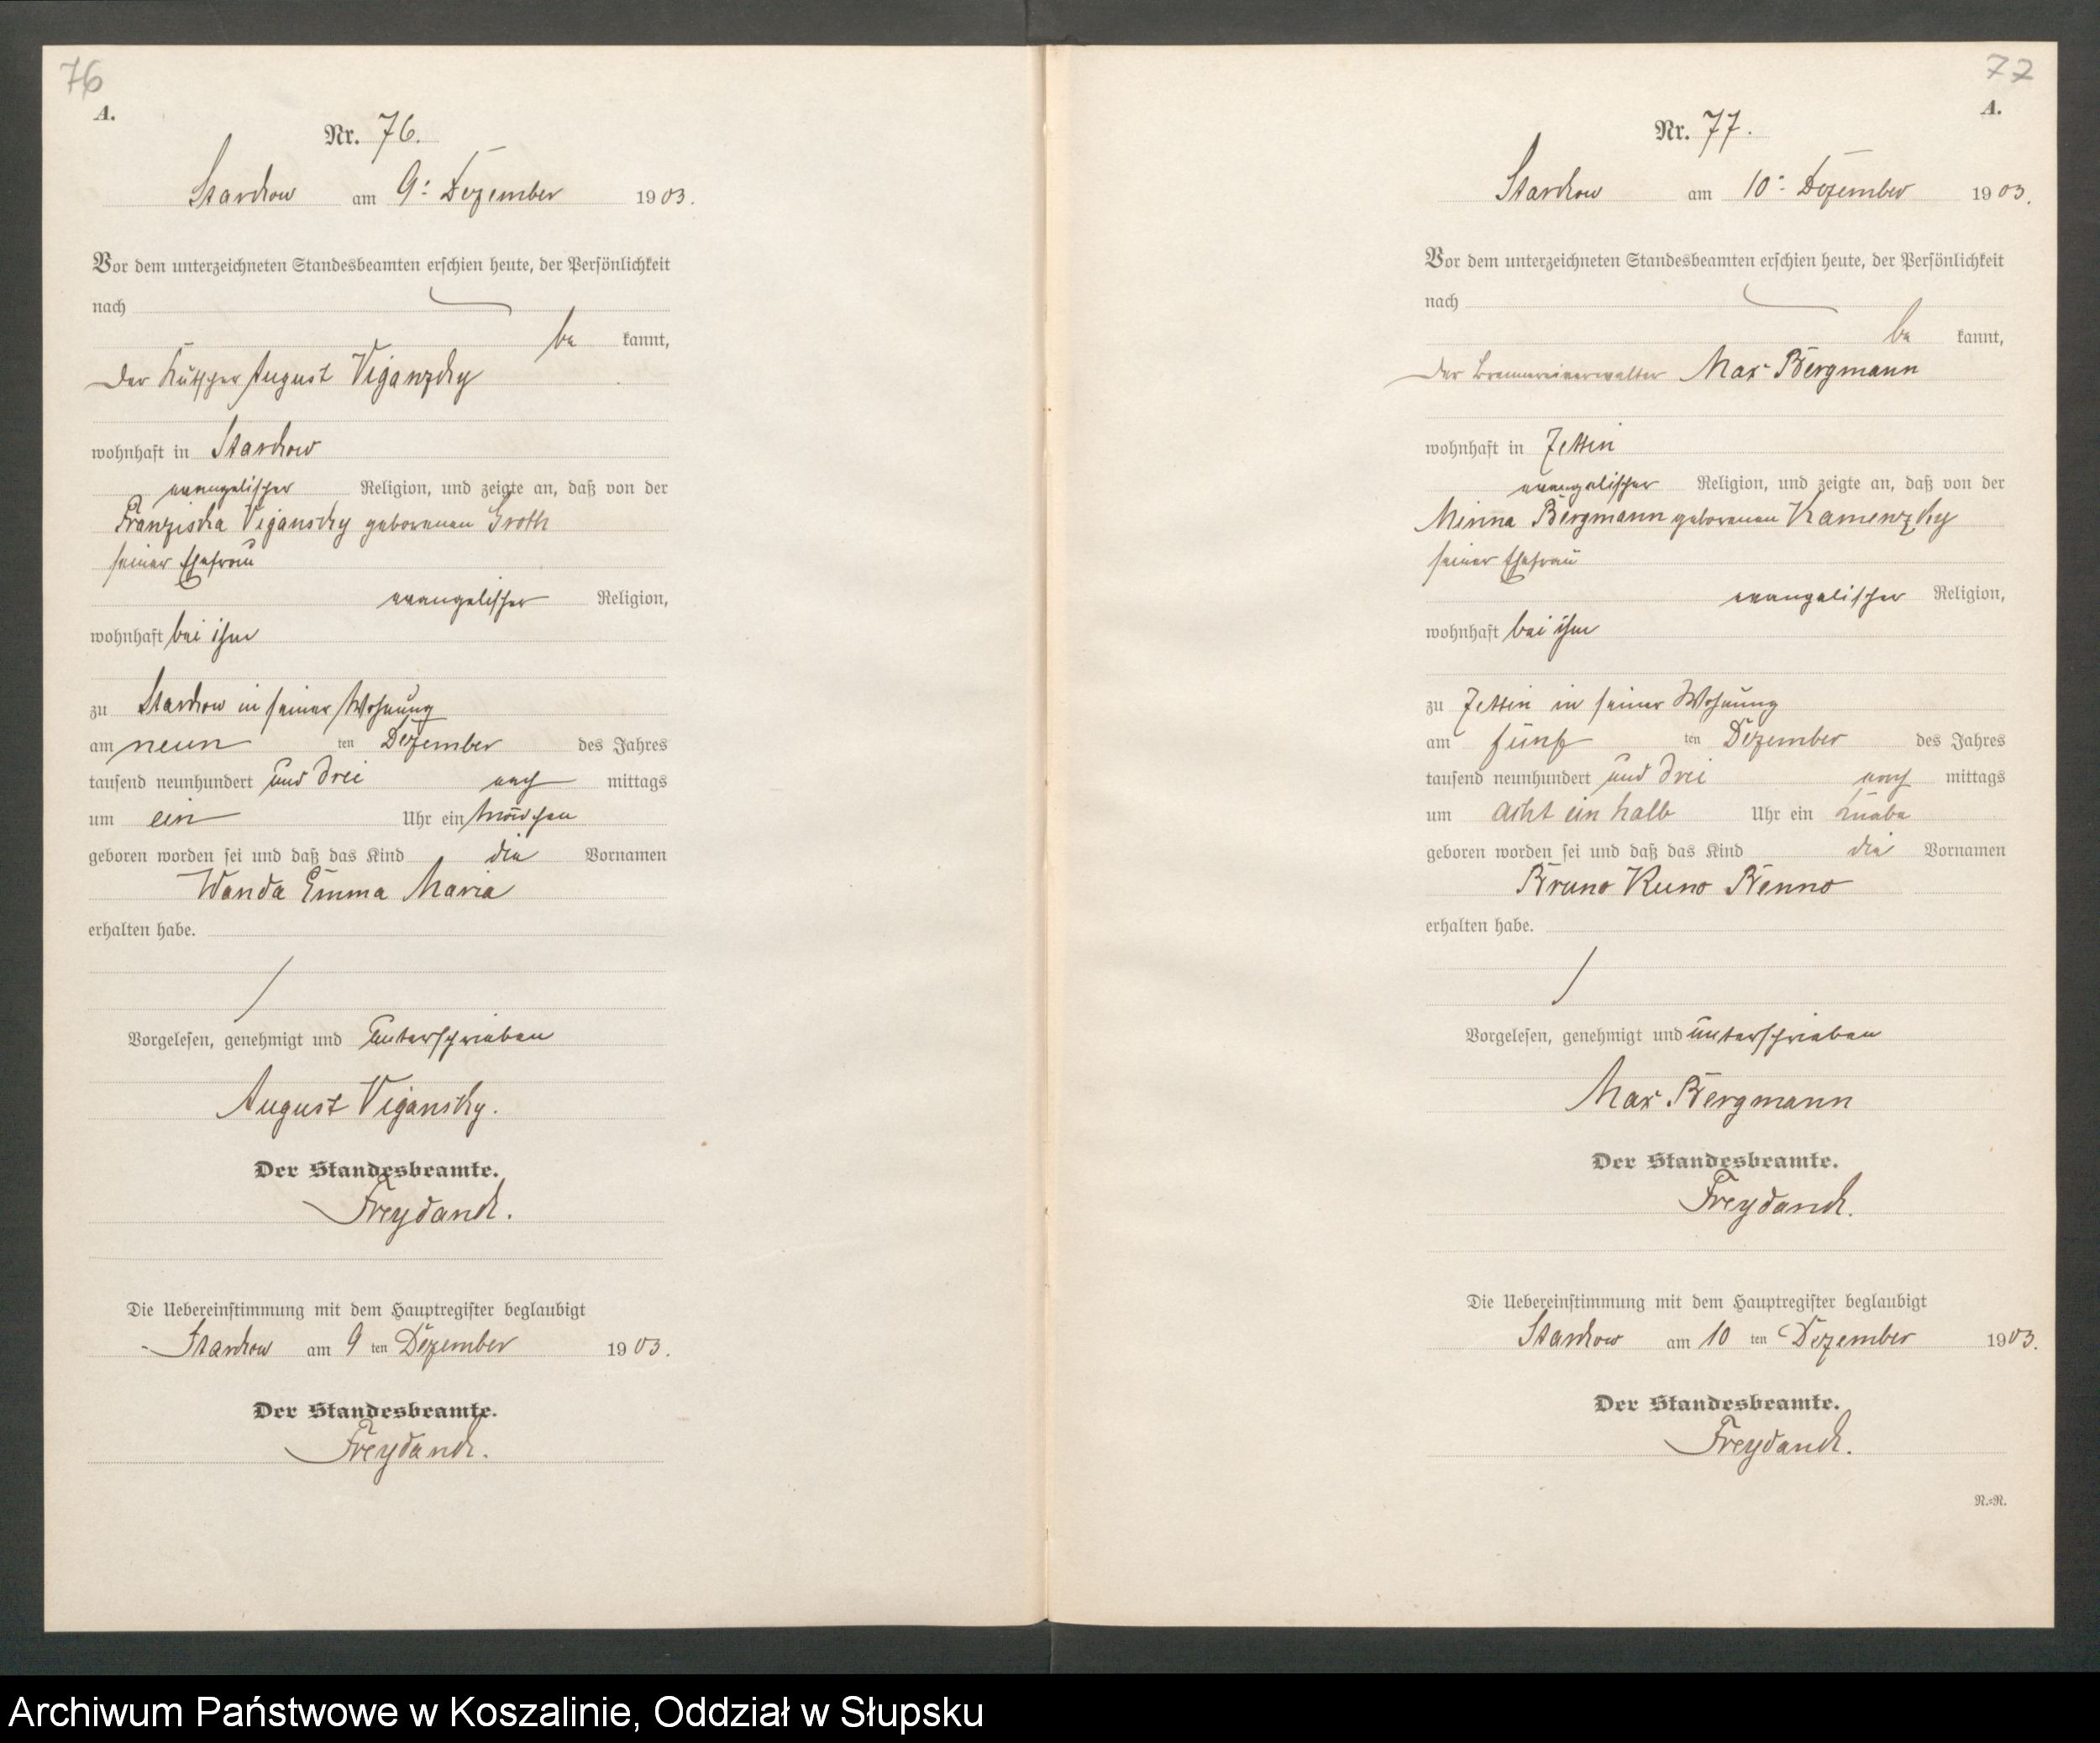 76
A.
Nr. 76.
Starckow am 9. Dezember 1903.
Vor dem unterzeichneten Standesbeamten erschien heute, der Persönlichkeit
nach
be kannt,
der Kutscher August Viganzcky
wohnhaft in Starckow
evangelischer Religion, und zeigte an, daß von der
Franziska Vigansky geborenen Groth
seiner Ehefrau
evangelischer Religion,
wohnhaft bei ihm
zu Starckow in seiner Wohnung
am neun ten Dezember des Jahres
tausend neunhundert und drei nach mittags
um ein Uhr ein Mädchen
geboren worden sei und daß das Kind die Vornamen
Wanda Emma Maria
erhalten habe.
Vorgelesen, genehmigt und unterschrieben
August Vigansky.
Der Standesbeamte.
Freydanck.
Die Uebereinstimmung mit dem Hauptregister beglaubigt
Starckow am 9 ten Dezember 1903.
Der Standesbeamte.
Freydanck.
77
A.
Nr. 77.
Starckow am 10. Dezember 1903.
Vor dem unterzeichneten Standesbeamten erschien heute, der Persönlichkeit
nach
be kannt,
der Brennereiverwalter Max Bergmann
wohnhaft in Zettin
evangelischer Religion, und zeigte an, daß von der
Minna Bergmann geborenen Kamenzky
seiner Ehefrau
evangelischer Religion,
wohnhaft bei ihm
zu Zettin in seiner Wohnung
am fünf ten Dezember des Jahres
tausend neunhundert und drei nach mittags
um acht ein halb Uhr ein Knabe
geboren worden sei und daß das Kind die Vornamen
Bruno Kuno Benno
erhalten habe.
Vorgelesen, genehmigt und unterschrieben
Max Bergmann
Der Standesbeamte.
Freydanck.
Die Uebereinstimmung mit dem Hauptregister beglaubigt
Starckow am 10 ten Dezember 1903.
Der Standesbeamte.
Freydanck.
N.=N.
Archiwum Państwowe w Koszalinie, Oddział w Słupsku